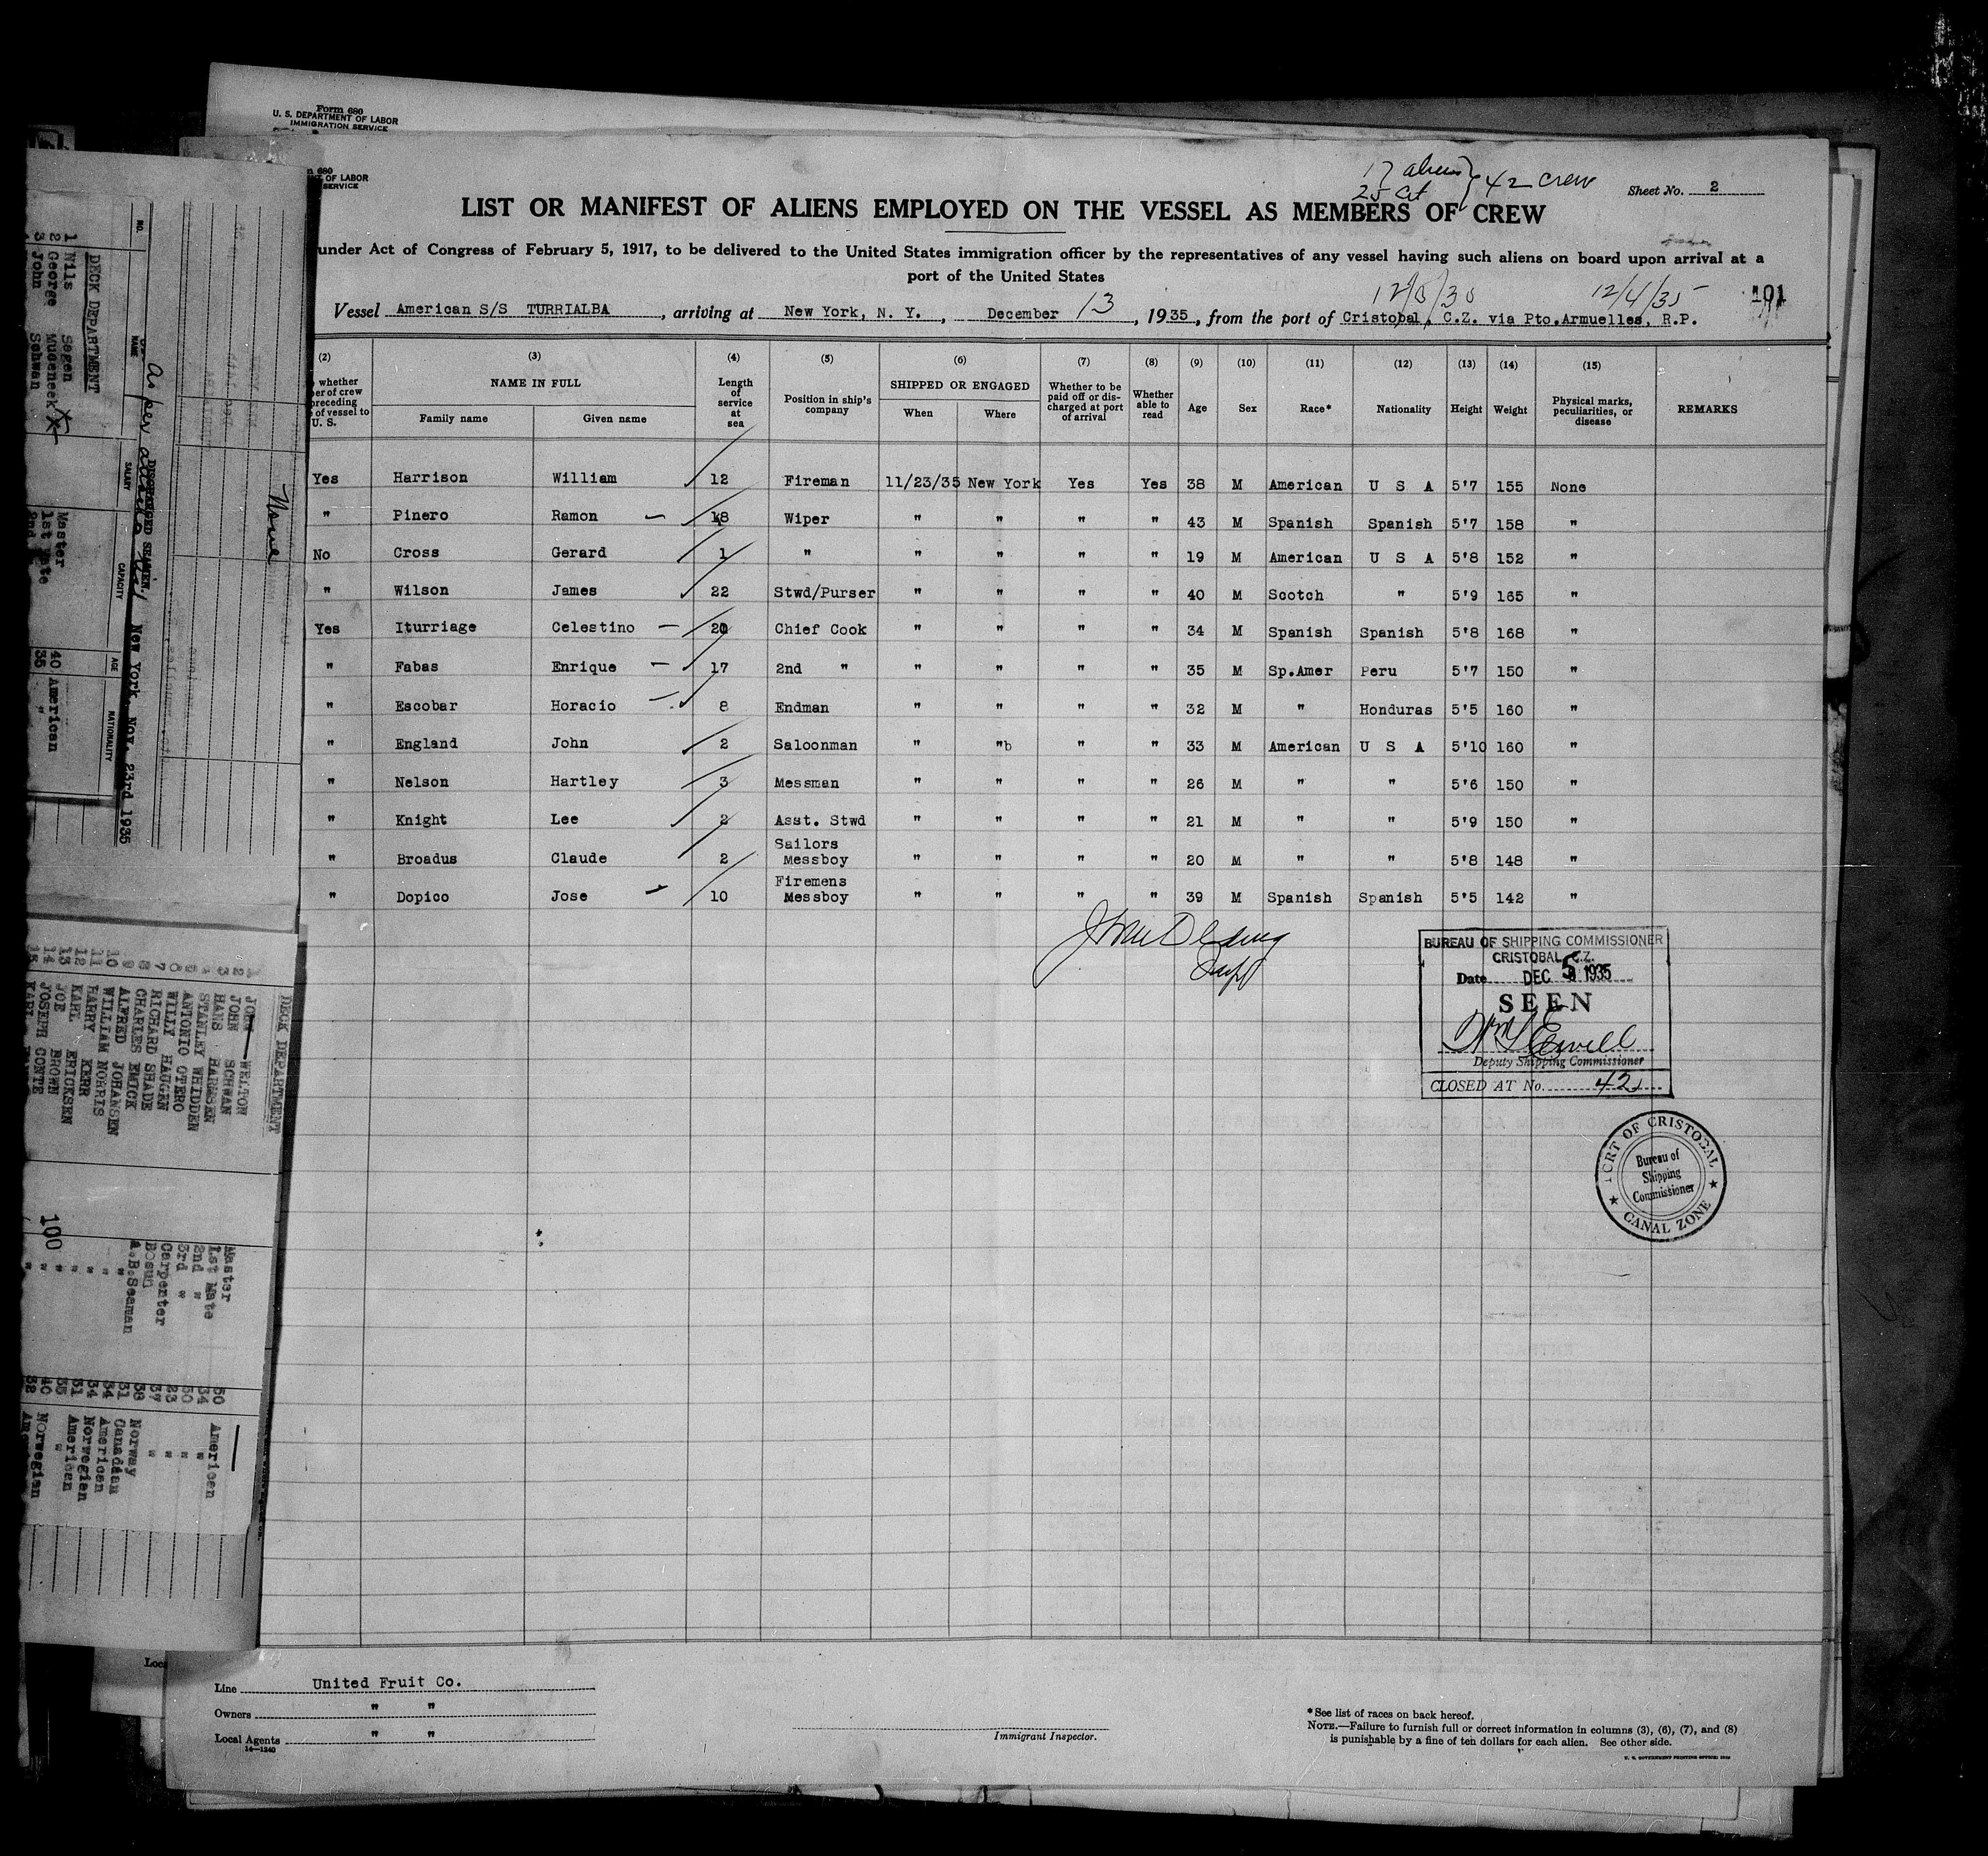 Form 680
U. S. DEPARTMENT OF LABOR
IMMIGRATION SERVICE
680
OF LABOR
SERVICE
17 aliens
25 Cit } 42 crew
Sheet No. 2
LIST OR MANIFEST OF ALIENS EMPLOYED ON THE VESSEL AS MEMBERS OF CREW
under Act of Congress of February 5, 1917, to be delivered to the United States immigration officer by the representatives of any vessel having such aliens on board upon arrival at a
port of the United States
12/4/35
101
Vessel American S/S TURRIALBA, arriving at New York, N. Y., December 13, 1935, from the port of Cristobal, C.Z. via Pto.Armuelles, R.P.
(2) (3) (4) (5) (6) (7) (8) (9) (10) (11) (12) (13) (14) (15)
whether
of crew
preceding
of vessel to
U. S.
NAME IN FULL
Family name Given name
Length of service at sea
Position in ship's company
SHIPPED OR ENGAGED
When Where
Whether to be paid off or discharged at port of arrival
Whether able to read
Age
Sex
Race*
Nationality
Height
Weight
Physical marks, peculiarities, or disease
REMARKS
Yes Harrison William 12 Fireman 11/23/35 New York Yes Yes 38 M American U S A 5'7 155 None
" Pinero Ramon — 18 Wiper " " " " 43 M Spanish Spanish 5'7 158 "
No Cross Gerard 1 " " " " " 19 M American U S A 5'8 152 "
" Wilson James 22 Stwd/Purser " " " " 40 M Scotch " 5'9 165 "
Yes Iturriage Celestino — 20 Chief Cook " " " " 34 M Spanish Spanish 5'8 168 "
" Fabas Enrique — 17 2nd " " " " " 35 M Sp.Amer Peru 5'7 150 "
" Escobar Horacio — 8 Endman " " " " 32 M " Honduras 5'5 160 "
" England John 2 Saloonman " "b " " 33 M American U S A 5'10 160 "
" Nelson Hartley 3 Messman " " " " 26 M " " 5'6 150 "
" Knight Lee 2 Asst. Stwd " " " " 21 M " " 5'9 150 "
" Broadus Claude 2 Sailors Messboy " " " " 20 M " " 5'8 148 "
" Dopico Jose 10 Firemens Messboy " " " " 39 M Spanish Spanish 5'5 142 "
BUREAU OF SHIPPING COMMISSIONER
CRISTOBAL C.Z.
Date DEC 5 1935
SEEN
Deputy Shipping Commissioner
CLOSED AT No. 42
PORT OF CRISTOBAL
Bureau of
Shipping
Commissioner
CANAL ZONE
Line United Fruit Co.
Owners " "
Local Agents " "
14—1240
Immigrant Inspector.
*See list of races on back hereof.
NOTE.—Failure to furnish full or correct information in columns (3), (6), (7), and (8)
is punishable by a fine of ten dollars for each alien. See other side.
U. S. GOVERNMENT PRINTING OFFICE
None
New York, Nov. 23rd 1935
DISCHARGED SEAMEN
as per
NO. NAME SALARY CAPACITY AGE NATIONALITY
DECK DEPARTMENT
1 Nils Sagen Master 40 American
2 George Muceneek 1st Mate 35 "
3 John Schwan 2nd
DECK DEPARTMENT
1 JOHN WELTON Master 50 American
2 JOHN SCHWAN 1st Mate 34 "
3 HANS HARMSEN 2nd " 50 "
4 STANLEY WHIDDEN 3rd " 23 "
5 ANTONIO OTERO Carpenter 37 "
6 WILLY HAUGEN Bosun 38 Norway
7 RICHARD SHADE A.B.Seaman 31 Canadian
8 CHARLES EMICK " 34 American
9 ALFRED JOHANSEN " 34 Norwegian
10 WILLIAM NORRIS " 31 American
11 HARRY KERR " 35 "
12 KARL ERICKSEN " 40 Norwegian
13 JOE BROWN "
14 JOSEPH CONTE
15 KARL
100